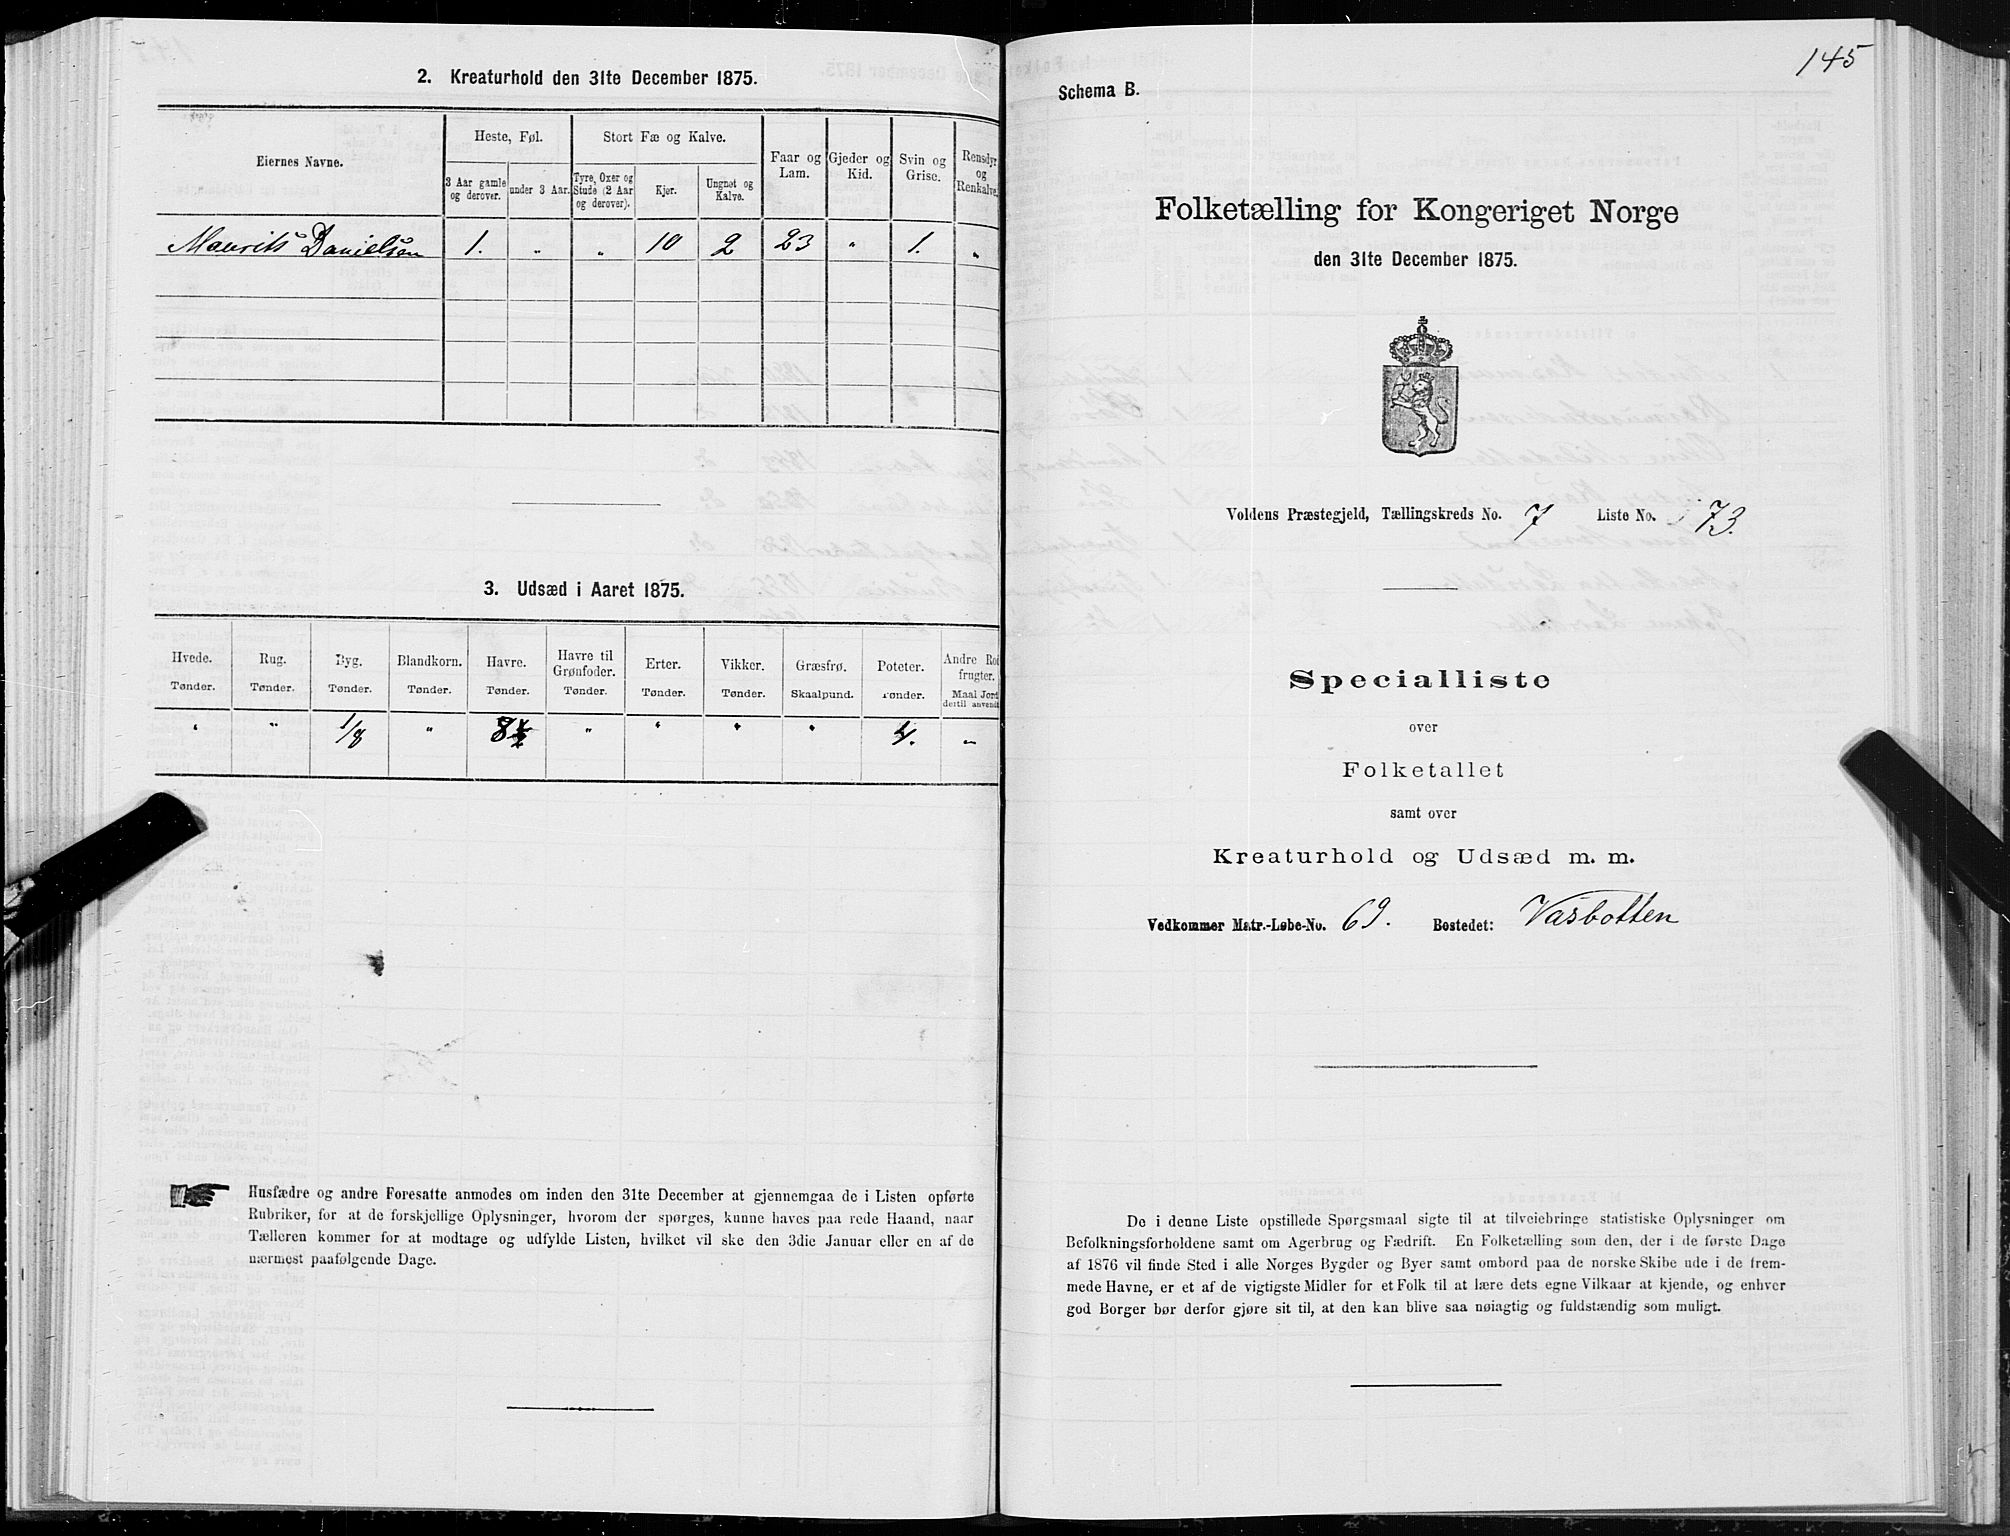 2. Kreaturhold den 31te December 1875.
Eiernes Navne.
Heste, Føl.
Stort Fæ og Kalve.
Faar og Lam.
Gjeder og Kid.
Svin og Grise.
Rensdyr og Renkalve.
3 Aar gamle og derover.
under 3 Aar.
Tyre, Oxer og Stude (2 Aar og derover).
Kjør.
Ungnøt og Kalve.
Maurits Danielsen 1. " " 10 2 23 " 1. "
3. Udsæd i Aaret 1875.
Hvede. Rug. Byg. Blandkorn. Havre. Havre til Grønfoder. Erter. Vikker. Græsfrø. Poteter. Andre Rodfrugter.
Tønder. Tønder. Tønder. Tønder. Tønder. Tønder. Tønder. Tønder. Skaalpund. Tønder. Maal Jord dertil anvendt
" " 1/8 " " " " " 4. "
Husfædre og andre Foresatte anmodes om inden den 31te December at gjennemgaa de i Listen opførte
Rubriker, for at de forskjellige Oplysninger, hvorom der spørges, kunne haves paa rede Haand, naar
Tælleren kommer for at modtage og udfylde Listen, hvilket vil ske den 3die Januar eller en af de
nærmest paafølgende Dage.
145
Schema B.
Folketælling for Kongeriget Norge
den 31te December 1875.
Voldens Præstegjeld, Tællingskreds No. 7 Liste No. 73.
Specialliste
over
Folketallet
samt over
Kreaturhold og Udsæd m. m.
Vedkommer Matr.-Løbe-No. 69. Bostedet: Vasbotten
De i denne Liste opstillede Spørgsmaal sigte til at tilveiebringe statistiske Oplysninger om
Befolkningsforholdene samt om Agerbrug og Fædrift. En Folketælling som den, der i de første Dage
af 1876 vil finde Sted i alle Norges Bygder og Byer samt ombord paa de norske Skibe ude i de frem-
mede Havne, er et af de vigtigste Midler for et Folk til at lære dets egne Vilkaar at kjende, og enhver
god Borger bør derfor gjøre sit til, at den kan blive saa nøiagtig og fuldstændig som muligt.